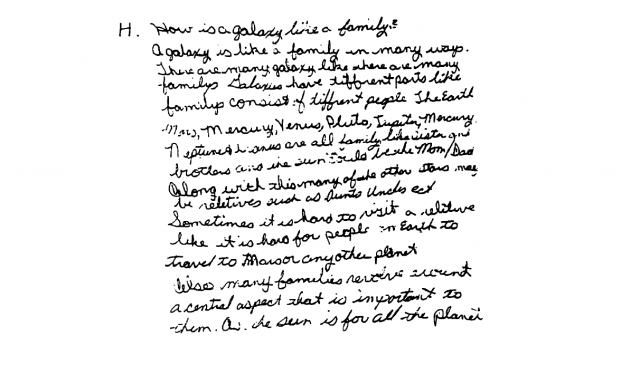 H. How is a galaxy like a family?
A galaxy is like a family in many ways.
There are many galaxy like there are many
familys Galaxies have tifferent parts like
familys consist of tiffrent people The Earth
Mars, Mercury, Venus, Pluto, Jupiter, Mercury
Neptune are all family like sister and
brothers and the sun could be the Mom/Dad
Along with this many of the other stars may
be reletives such as Aunts Uncles ect
Sometimes it is hard to visit a reletive
like it is hard for people on Earth to
travel to Mars or any other planet
Also many families revolve around
a central aspect that is important to
them. As the sun is for all the planet